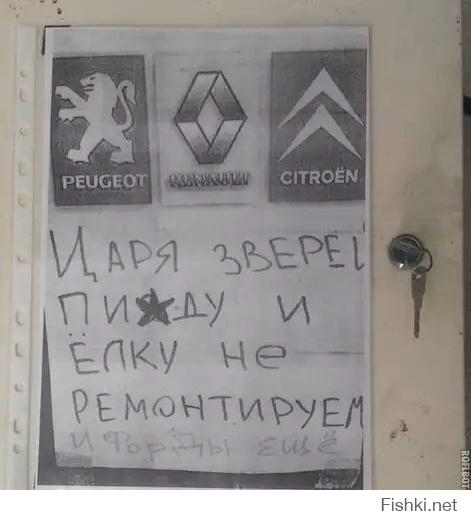 PEUGEOT RENAULT CITROËN
ЦАРЯ ЗВЕРЕЙ
ПИ★ДУ И
ЁЛКУ НЕ
РЕМОНТИРУЕМ
И ФОРДЫ ЕЩЁ
ROFLBOT
Fishki.net